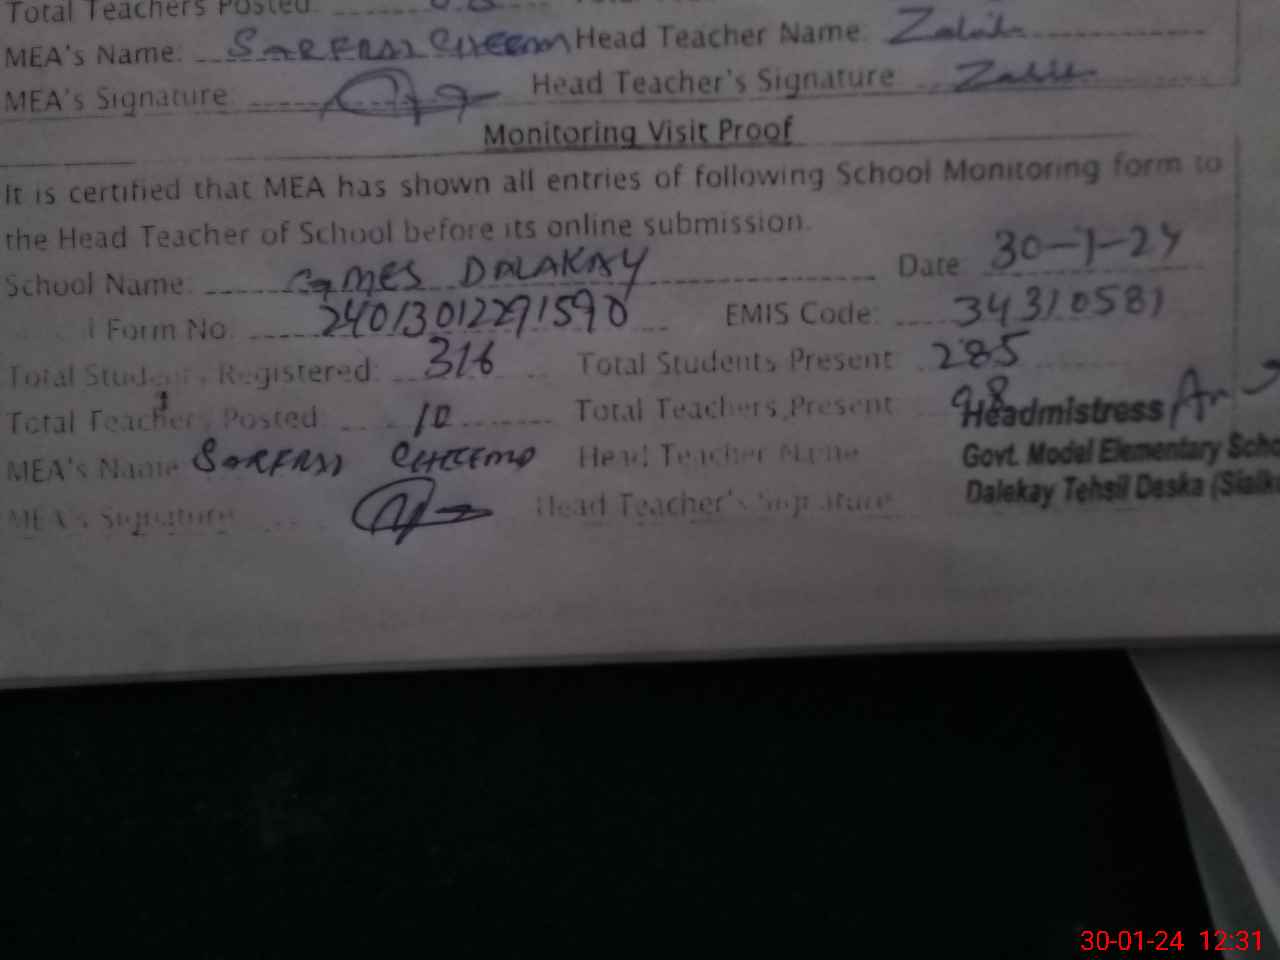 Total Teachers Posted:
MEA's Name: SARFRAZ CHEEMA Head Teacher Name:
MEA's Signature Head Teacher's Signature
Monitoring Visit Proof
It is certified that MEA has shown all entries of following School Monitoring form to
the Head Teacher of School before its online submission.
School Name: GMES DALAKAY Date 30-1-24
Form No: 24013012291590 EMIS Code: 34310581
Total Students Registered: 316 Total Students Present 285
Total Teachers Posted: 10 Total Teachers Present
Headmistress
MEA's Name SARFRAZ CHEEMA Head Teacher Name
Govt. Model Elementary
Dalekay Tehsil Daska
MEA's Signature Head Teacher's Signature
30-01-24 12:31